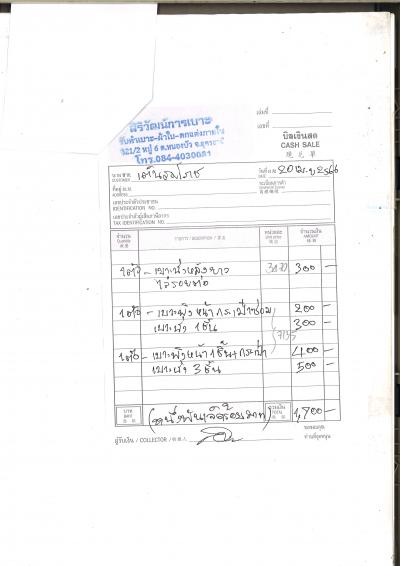 สิริวัฒน์การเบาะ
รับทำเบาะ-ผ้าใบ-ตกแต่งภายใน
321/2 หมู่ 6 ต.หนองบัว อ.
โทร.084-40300
เล่มที่
เลขที่
บิลเงินสด
CASH SALE
現 兌 單
นาม
CUSTOMER
วันที่ 20 เม.ย 2566
DATE
ที่อยู่
ADDRESS
ทะเบียนการค้า
เลขประจำตัวประชาชน
IDENTIFICATION NO.
เลขประจำตัวผู้เสียภาษีอากร
TAX IDENTIFICATION NO.
จำนวน
Quantity
รายการ / DESCRIPTION
หน่วยละ
Unit price
จำนวนเงิน
AMOUNT
1 ตัว - เบาะนั่งหลังยาว 300 -
ใส่รอยต่อ
1 ตัว - เบาะพิงหน้า กระเป๋าซ่อม 200 -
เบาะนั่ง 1 ชิ้น 300 -
1 ตัว - เบาะพิงหน้า 1 ชิ้น + กระเป๋า 400 -
เบาะนั่ง 3 ชิ้น 500 -
บาท
BAHT
(หนึ่งพันเจ็ดร้อยบาท)
รวมเงิน
TOTAL
1,700 -
ผู้รับเงิน / COLLECTOR
ขอขอบคุณ
ท่านที่อุดหนุน